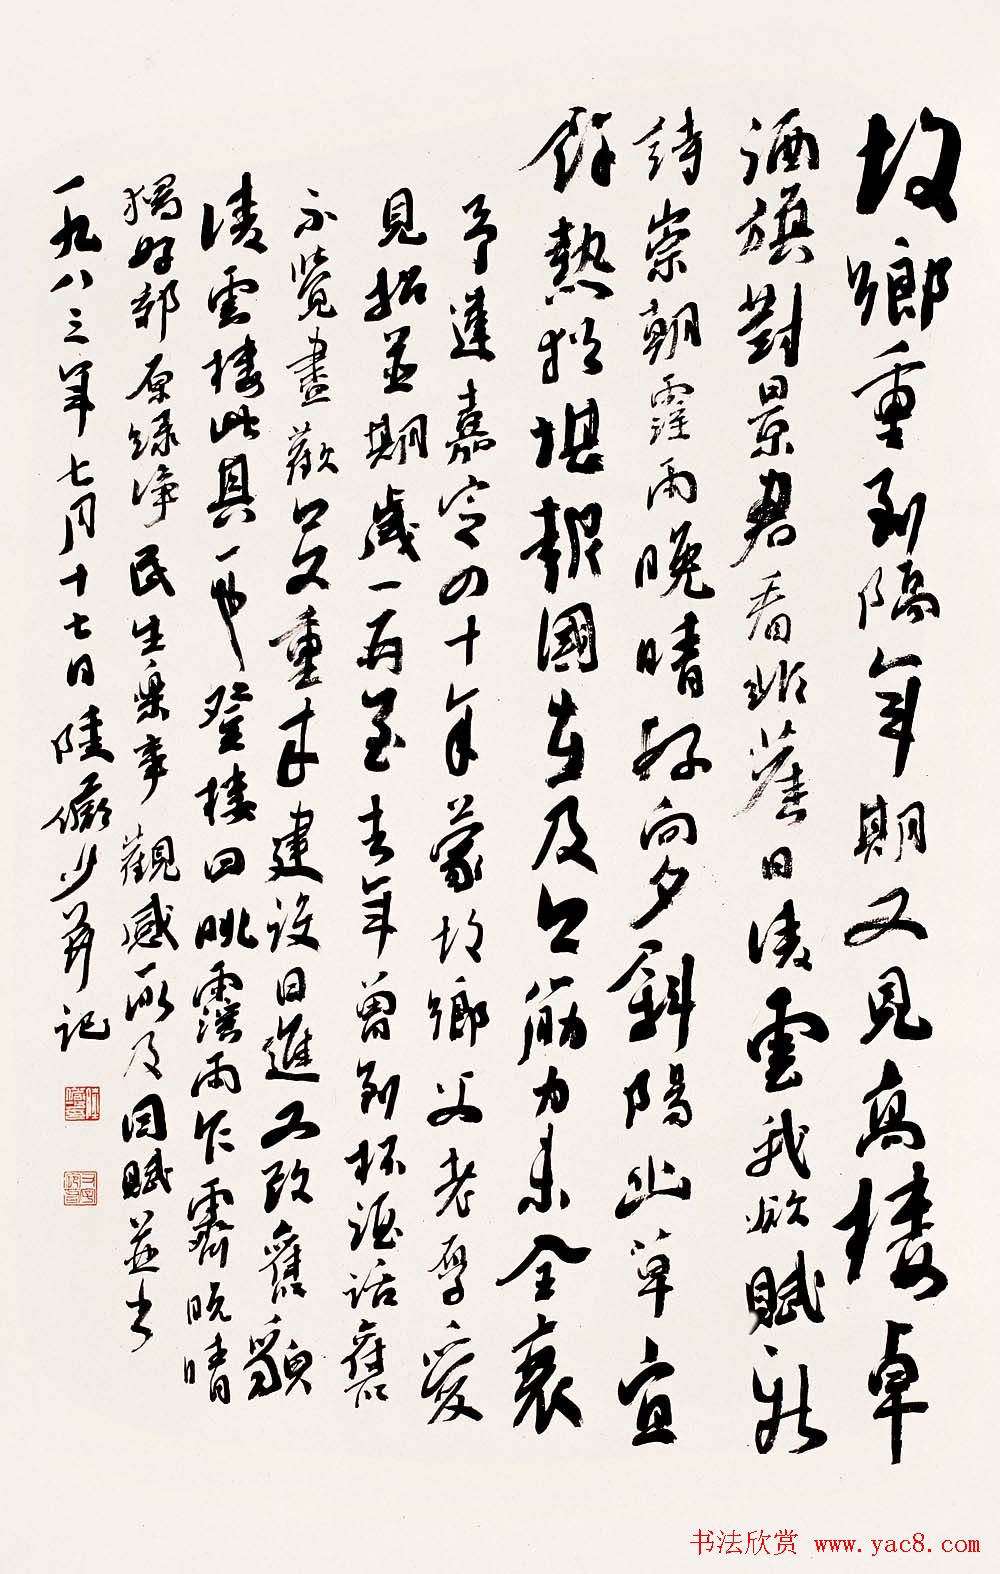 故鄉重到隔年期又見高樓卓
酒旗對景君看非舊日凌雲我欲賦新
詩崇朝霪雨晚晴好向夕斜陽山草宜
餘熱猶堪報國在及今筋力未全衰
予違嘉定四十年蒙故鄉父老厚愛
見招並期歲一再至去年曾到杯酒話舊
不覺盡歡今又重來建設日進又改舊貌
凌雲樓此其一也登樓四眺霪雨乍霽晚晴
獨好郊原綠淨民生樂事觀感所及因賦並書
一九八三年七月十七日陸儼少并記
书法欣赏 www.yac8.com